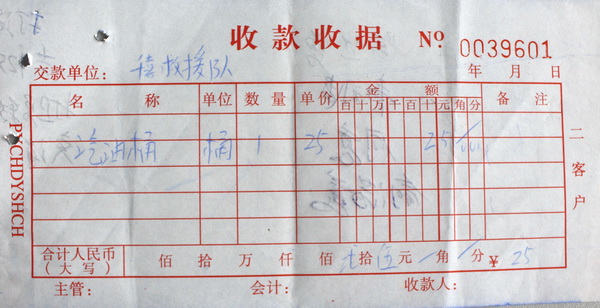 收款收据 No 0039601
交款单位: 救援队 年 月 日
名 称 单位 数量 单价 金 额 备 注
百 十 万 千 百 十 元 角 分
桶 桶 1 25 25
合计人民币 (大写) 佰 拾 万 仟 佰 拾 伍 元 角 分 ¥ 25
主管: 会计: 收款人:
二 客户
PYCHDYSHCH